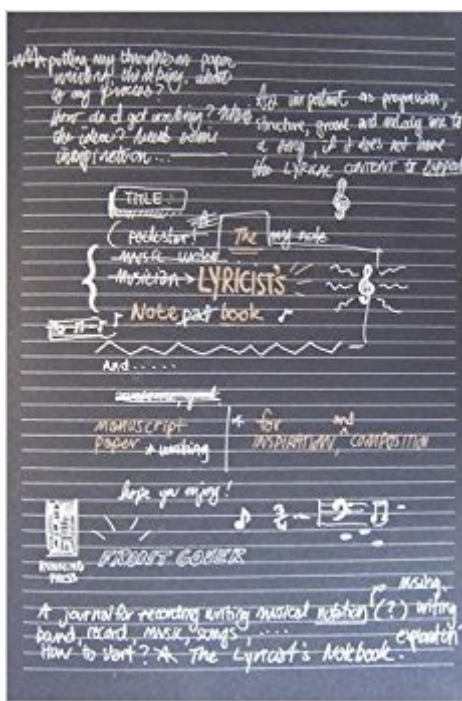 putting my thoughts on paper
writing, what
is my process?
How do I get working?
the idea? Need some
inspiration...
As important as progression,
structure, groove and melody are to
a song, if it does not have
the LYRICAL CONTENT to support
TITLE:
(rockstar!
The my note
music writer
Musician → LYRICIST'S
Note pad book
And.....
manuscript
paper & writing
for and
INSPIRATION, COMPOSITION
hope you enjoy!
RUNNING
PRESS
FRONT COVER
using
A journal for recording writing musical notation (?) writing
band, record, MUSIC, songs, .... explanation
How to start? The Lyricist's Notebook.